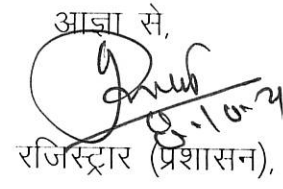 आज्ञा से,
रजिस्ट्रार (प्रशासन),